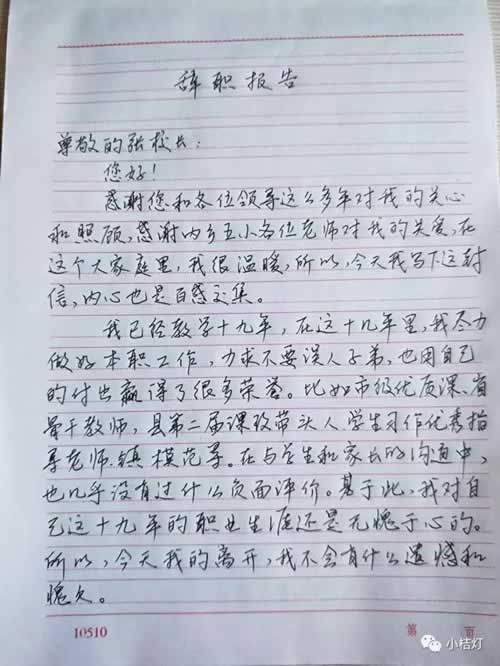 辞职报告
尊敬的张校长:
您好!
感谢您和各位领导这么多年对我的关心
和照顾,感谢内乡五小各位老师对我的关爱,在
这个大家庭里,我很温暖,所以,今天我写下这封
信,内心也是百感交集。
我已经教学十九年,在这十几年里,我尽力
做好本职工作,力求不要误人子弟,也用自己
的付出赢得了很多荣誉。比如市级优质课、省
骨干教师,县第二届课改带头人学生习作优秀指
导老师、镇模范等。在与学生和家长的沟通中,
也几乎没有过什么负面评价。基于此,我对自
己这十九年的职业生涯还是无愧于心的。
所以,今天我的离开,我不会有什么遗憾和
愧欠。
10510
第 页
小桔灯